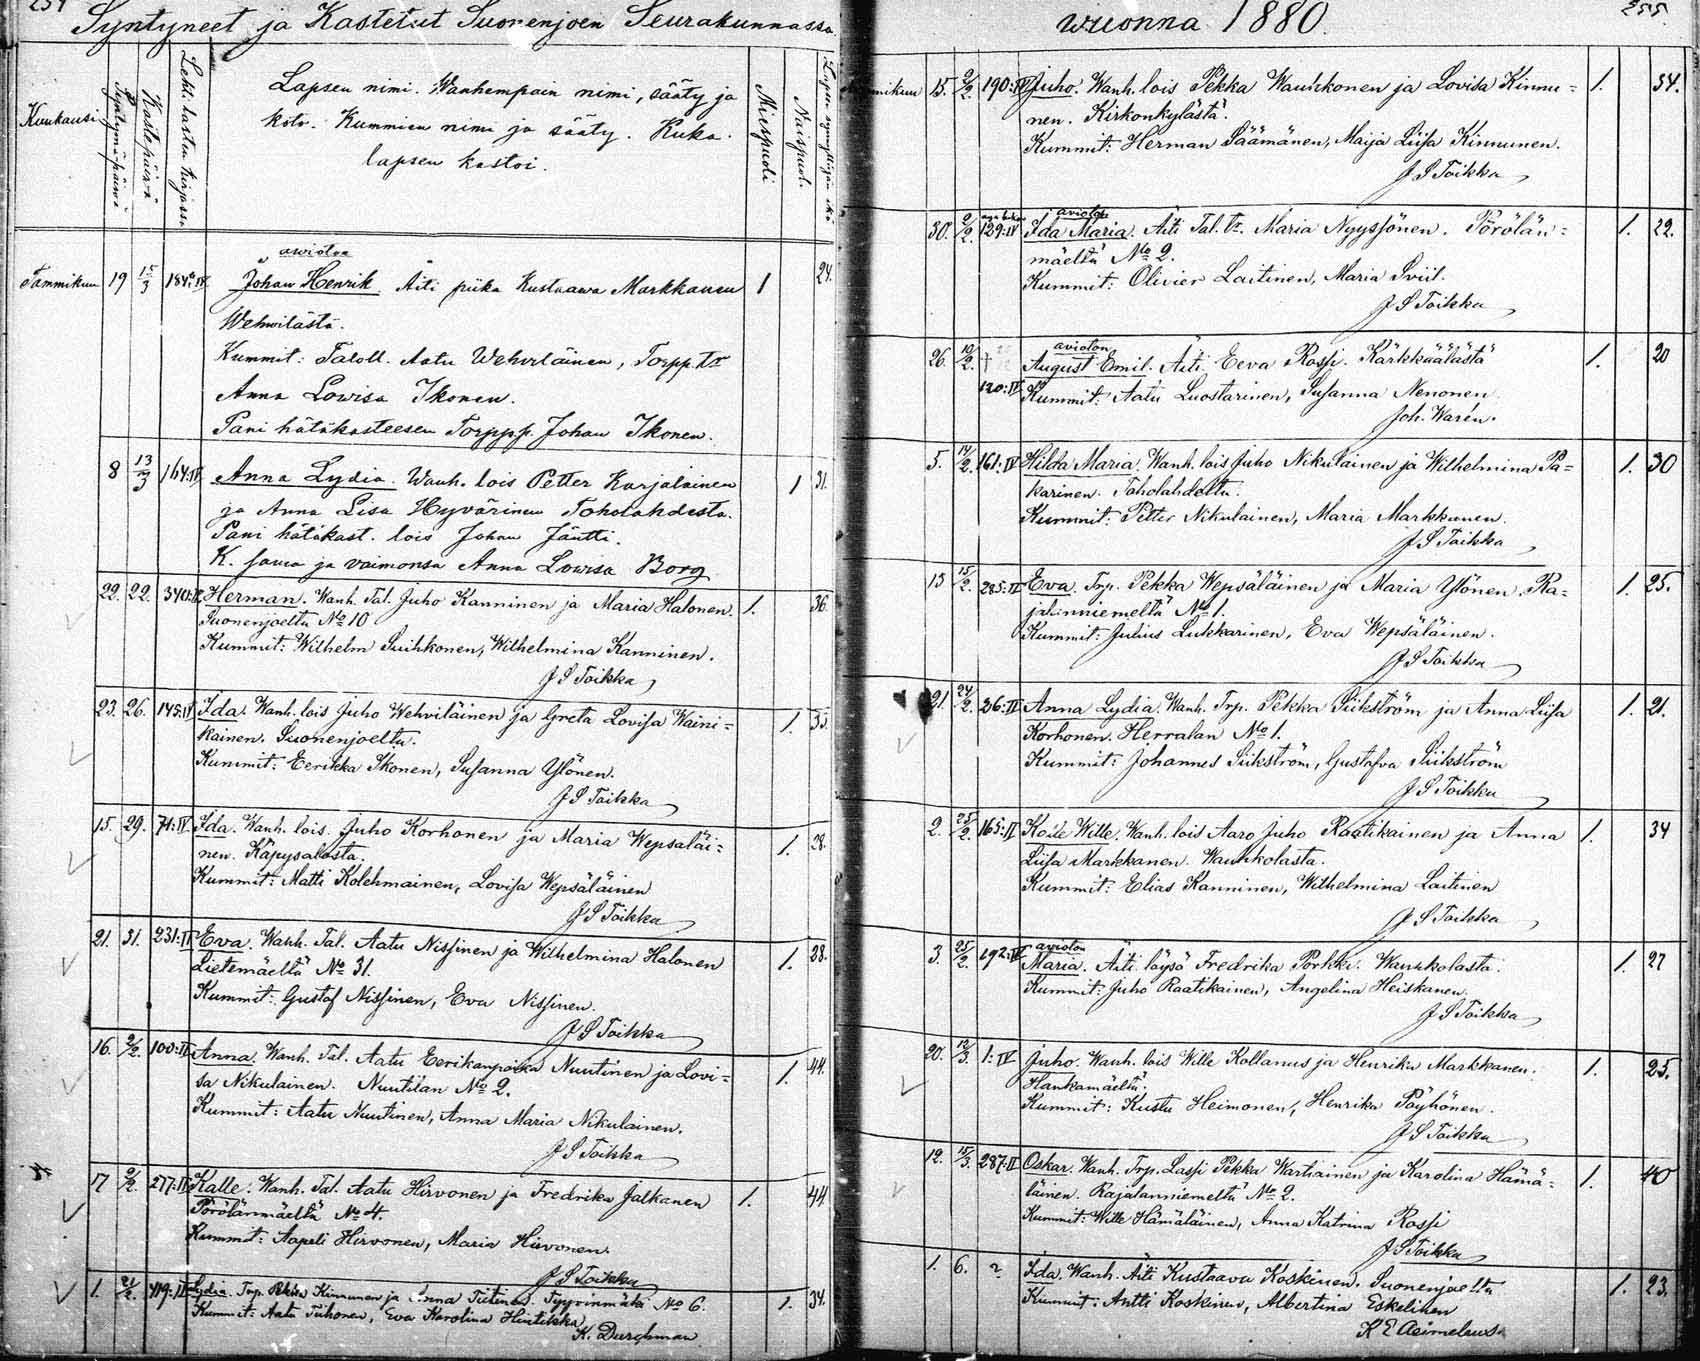 Syntyneet ja Kastetut Suonenjoen Seurakunnassa
Kuukausi
Syntymä päivä
Kastepäivä
Lehti lasten kirjassa
Lapsen nimi. Wanhempain nimi, sääty ja
koto. Kummien nimi ja sääty. Kuka
lapsen kastoi.
Miespuoli
Naispuoli
Lapsen synnyttäjän ikä
Tammikuu 19 15/3 184:IV
awioton
Johan Henrik. Äiti piika Kustaawa Markkanen 1 24.
Wehwilästä.
Kummit: Taloll. Aatu Wehviläinen, Torpp. tr
Anna Lowisa Ikonen.
Pani hätäkasteesen Torpp.p. Johan Ikonen.
8 13/3 164:IV Anna Lydia. Wanh. lois Petter Karjalainen 1 31.
ja Anna Lisa Hyvärinen Toholahdesta.
Pani hätäkast. lois Johan Jäntti.
K. sama ja vaimonsa Anna Lowisa Borg
22. 22. 340:II Herman. Wanh. Tal. Juho Kanninen ja Maria Halonen 1. 36.
Suonenjoelta No 10
Kummit: Wilhelm Suihkonen, Wilhelmina Kanninen.
J S Toikka
23. 26. 145:IV Ida. Wanh. lois Juho Wehviläinen ja Greta Lovisa Waini= 1. 35.
kainen. Suonenjoelta.
Kummit: Eerikka Ikonen, Susanna Ylönen.
J S Toikka
15. 29. 71:IV Ida. Wanh. lois. Juho Korhonen ja Maria Wepsäläi= 1. 28.
nen. Käpysalosta.
Kummit: Matti Kolehmainen, Lovisa Wepsäläinen
J S Toikka
21. 31. 231:II Eva. Wanh. Tal. Aatu Nissinen ja Wilhelmina Halonen 1. 28.
Lietemäeltä No 31.
Kummit: Gustaf Nissinen, Eva Nissinen.
J S Toikka
16. 2/2. 100:II Anna. Wanh. Tal. Aatu Eerikanpoika Nuutinen ja Lovi= 1. 44.
sa Nikulainen. Nuutilan No 2.
Kummit: Aatu Nuutinen, Anna Maria Nikulainen.
J S Toikka
17 2/2. 277:II Kalle. Wanh. Tal. Aatu Hirvonen ja Fredrika Jalkanen 1. 44.
Pörölänmäeltä No 4.
Kummit: Aapeli Hirvonen, Maria Hirvonen.
J S Toikka
1. 21/2. 419:II Lydia. Trp. Pekka Kinnunen ja Anna Tiitinen. Tyyrinmäki No 6. 1. 34.
Kummit: Aatu Tiihonen, Eva Karolina Hintikka
K. Durchman
wuonna 1880.
255.
15. 2/2. 190:IV Juho. Wanh. lois Pekka Wauhkonen ja Lovisa Kinnu= 1. 34.
nen. Kirkonkylästä.
Kummit: Herman Säämänen, Maija Liisa Kinnunen.
J S Toikka
avioton
30. 2/2. 129:IV Ida Maria. Äiti Tal. tr. Maria Nyyssönen. Pörölän= 1. 22.
mäeltä No 2.
Kummit: Olivier Laitinen, Maria
J S Toikka
avioton
26. 10/2. † August Emil. Äiti Eeva Rossi. Kärkkäälästä 1. 20
120:IV Kummit: Aatu Luostarinen, Susanna Nenonen
Joh. Warén.
5. 14/2. 161:IV Hilda Maria. Wanh. lois Juho Nikulainen ja Wilhelmina Pa= 1. 30
karinen. Toholahdelta.
Kummit: Petter Nikulainen, Maria Markkanen.
J S Toikka
13 15/2. 285:II Eva. Trp. Pekka Wepsäläinen ja Maria Ylönen Ra= 1. 25.
jalanniemeltä No 1.
Kummit: Julius Lukkarinen, Eva Wepsäläinen.
J S Toikka
21. 24/2. 36:II Anna Lydia. Wanh. Trp. Pekka Siikström ja Anna Liisa 1. 21.
Korhonen. Herralan No 1.
Kummit: Johannes Siikström, Gustafva Siikström
J S Toikka
2. 25/2. 165:II Kalle Wille. Wanh. lois Aaro Juho Raatikainen ja Anna 1. 34
Liisa Markkanen. Wauhkolasta.
Kummit: Elias Kanninen, Wilhelmina Laitinen
J S Toikka
avioton
3. 25/2. 192:IV Maria. Äiti löysä Fredrika Porkka. Wauhkolasta. 1. 27
Kummit: Juho Raatikainen, Angelina Heiskanen.
J S Toikka
20. 12/3. 1:IV Juho. Wanh. lois Wille Kollanus ja Henrika Markkanen. 1. 25.
Hankamäeltä.
Kummit: Kustu Heimonen, Henrika Pöyhönen.
J S Toikka
12. 15/3. 287:II Oskar. Wanh. Trp. Lassi Pekka Wartiainen ja Karolina Hämä= 1. 40
läinen. Rajalanniemeltä No 2.
Kummit: Wille Hämäläinen, Anna Katrina Rossi
J S Toikka
1. 6. ? Ida. Wanh. Äiti Kustaava Koskinen. Suonenjoelta 1. 23.
Kummit: Antti Koskinen, Albertina Eskelinen
K E Aeimelaeus